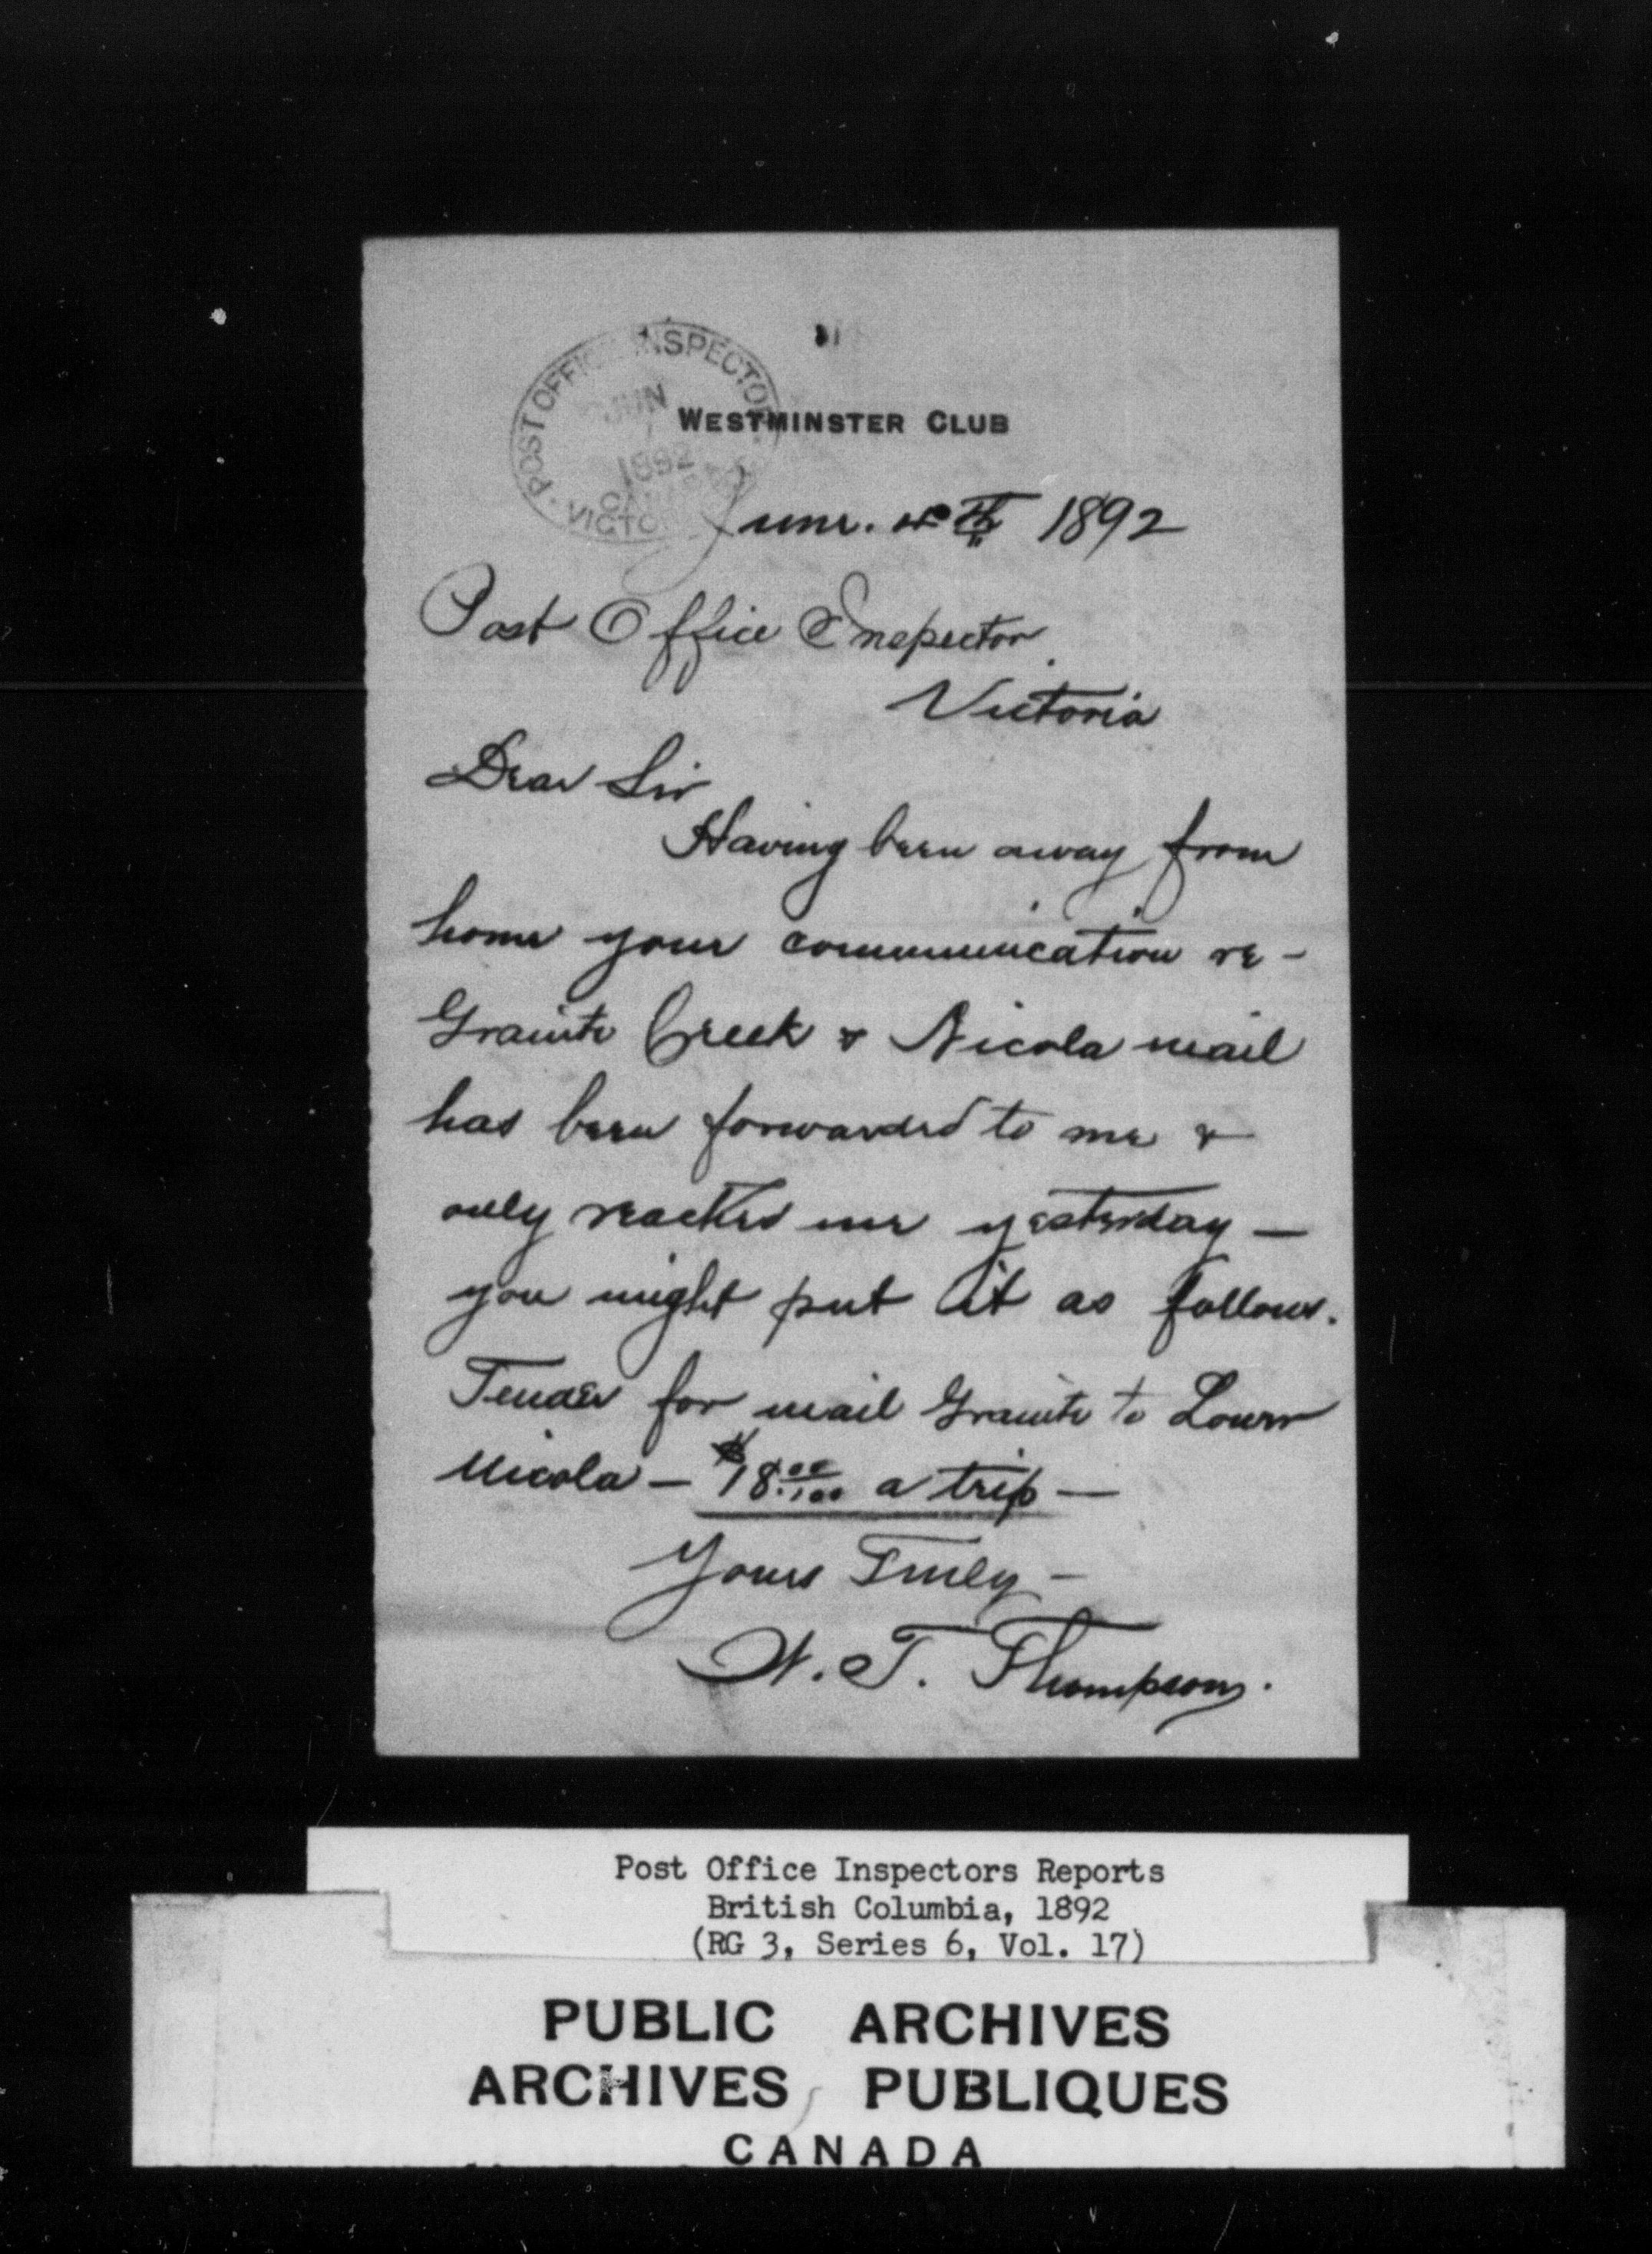 POST OFFICE INSPECTOR
JUN
1892
CANADA
VICTO
WESTMINSTER CLUB
June. th 1892
Post Office Inspector
Victoria
Dear Sir
Having been away from
home your communication re-
Granite Creek & Nicola mail
has been forwarded to me &
only reached me yesterday —
you might put it as follows.
Tender for mail Granite to Lower
Nicola — $18.00/100 a trip —
Yours Truly —
W. T. Thompson.
Post Office Inspectors Reports
British Columbia, 1892
(RG 3, Series 6, Vol. 17)
PUBLIC ARCHIVES
ARCHIVES PUBLIQUES
CANADA